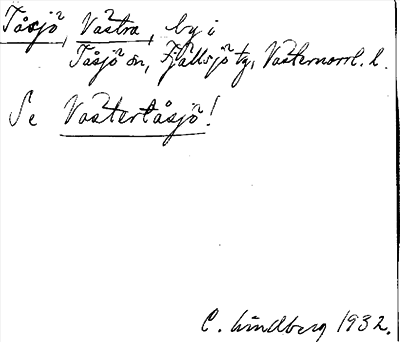 Tåsjö, Västra, by i
Tåsjö sn, Fjällsjö tg, Västernorrl. l.
Se Västertåsjö!
C. Lindberg 1932.